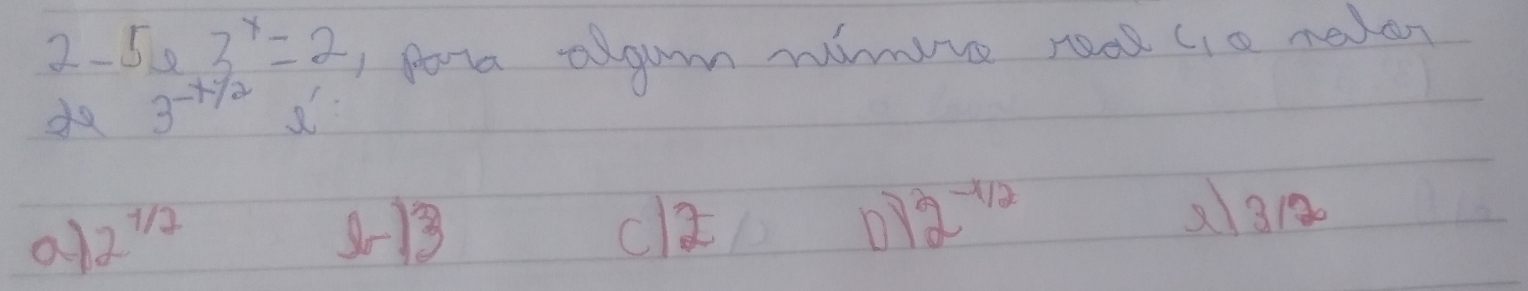 2-Se 3^x = 2, para algum número real c, o valor
de 3^{-x/2} é:
a) 2^{1/2} b) 3 c) 2 D) 2^{-1/2} e) 3/2